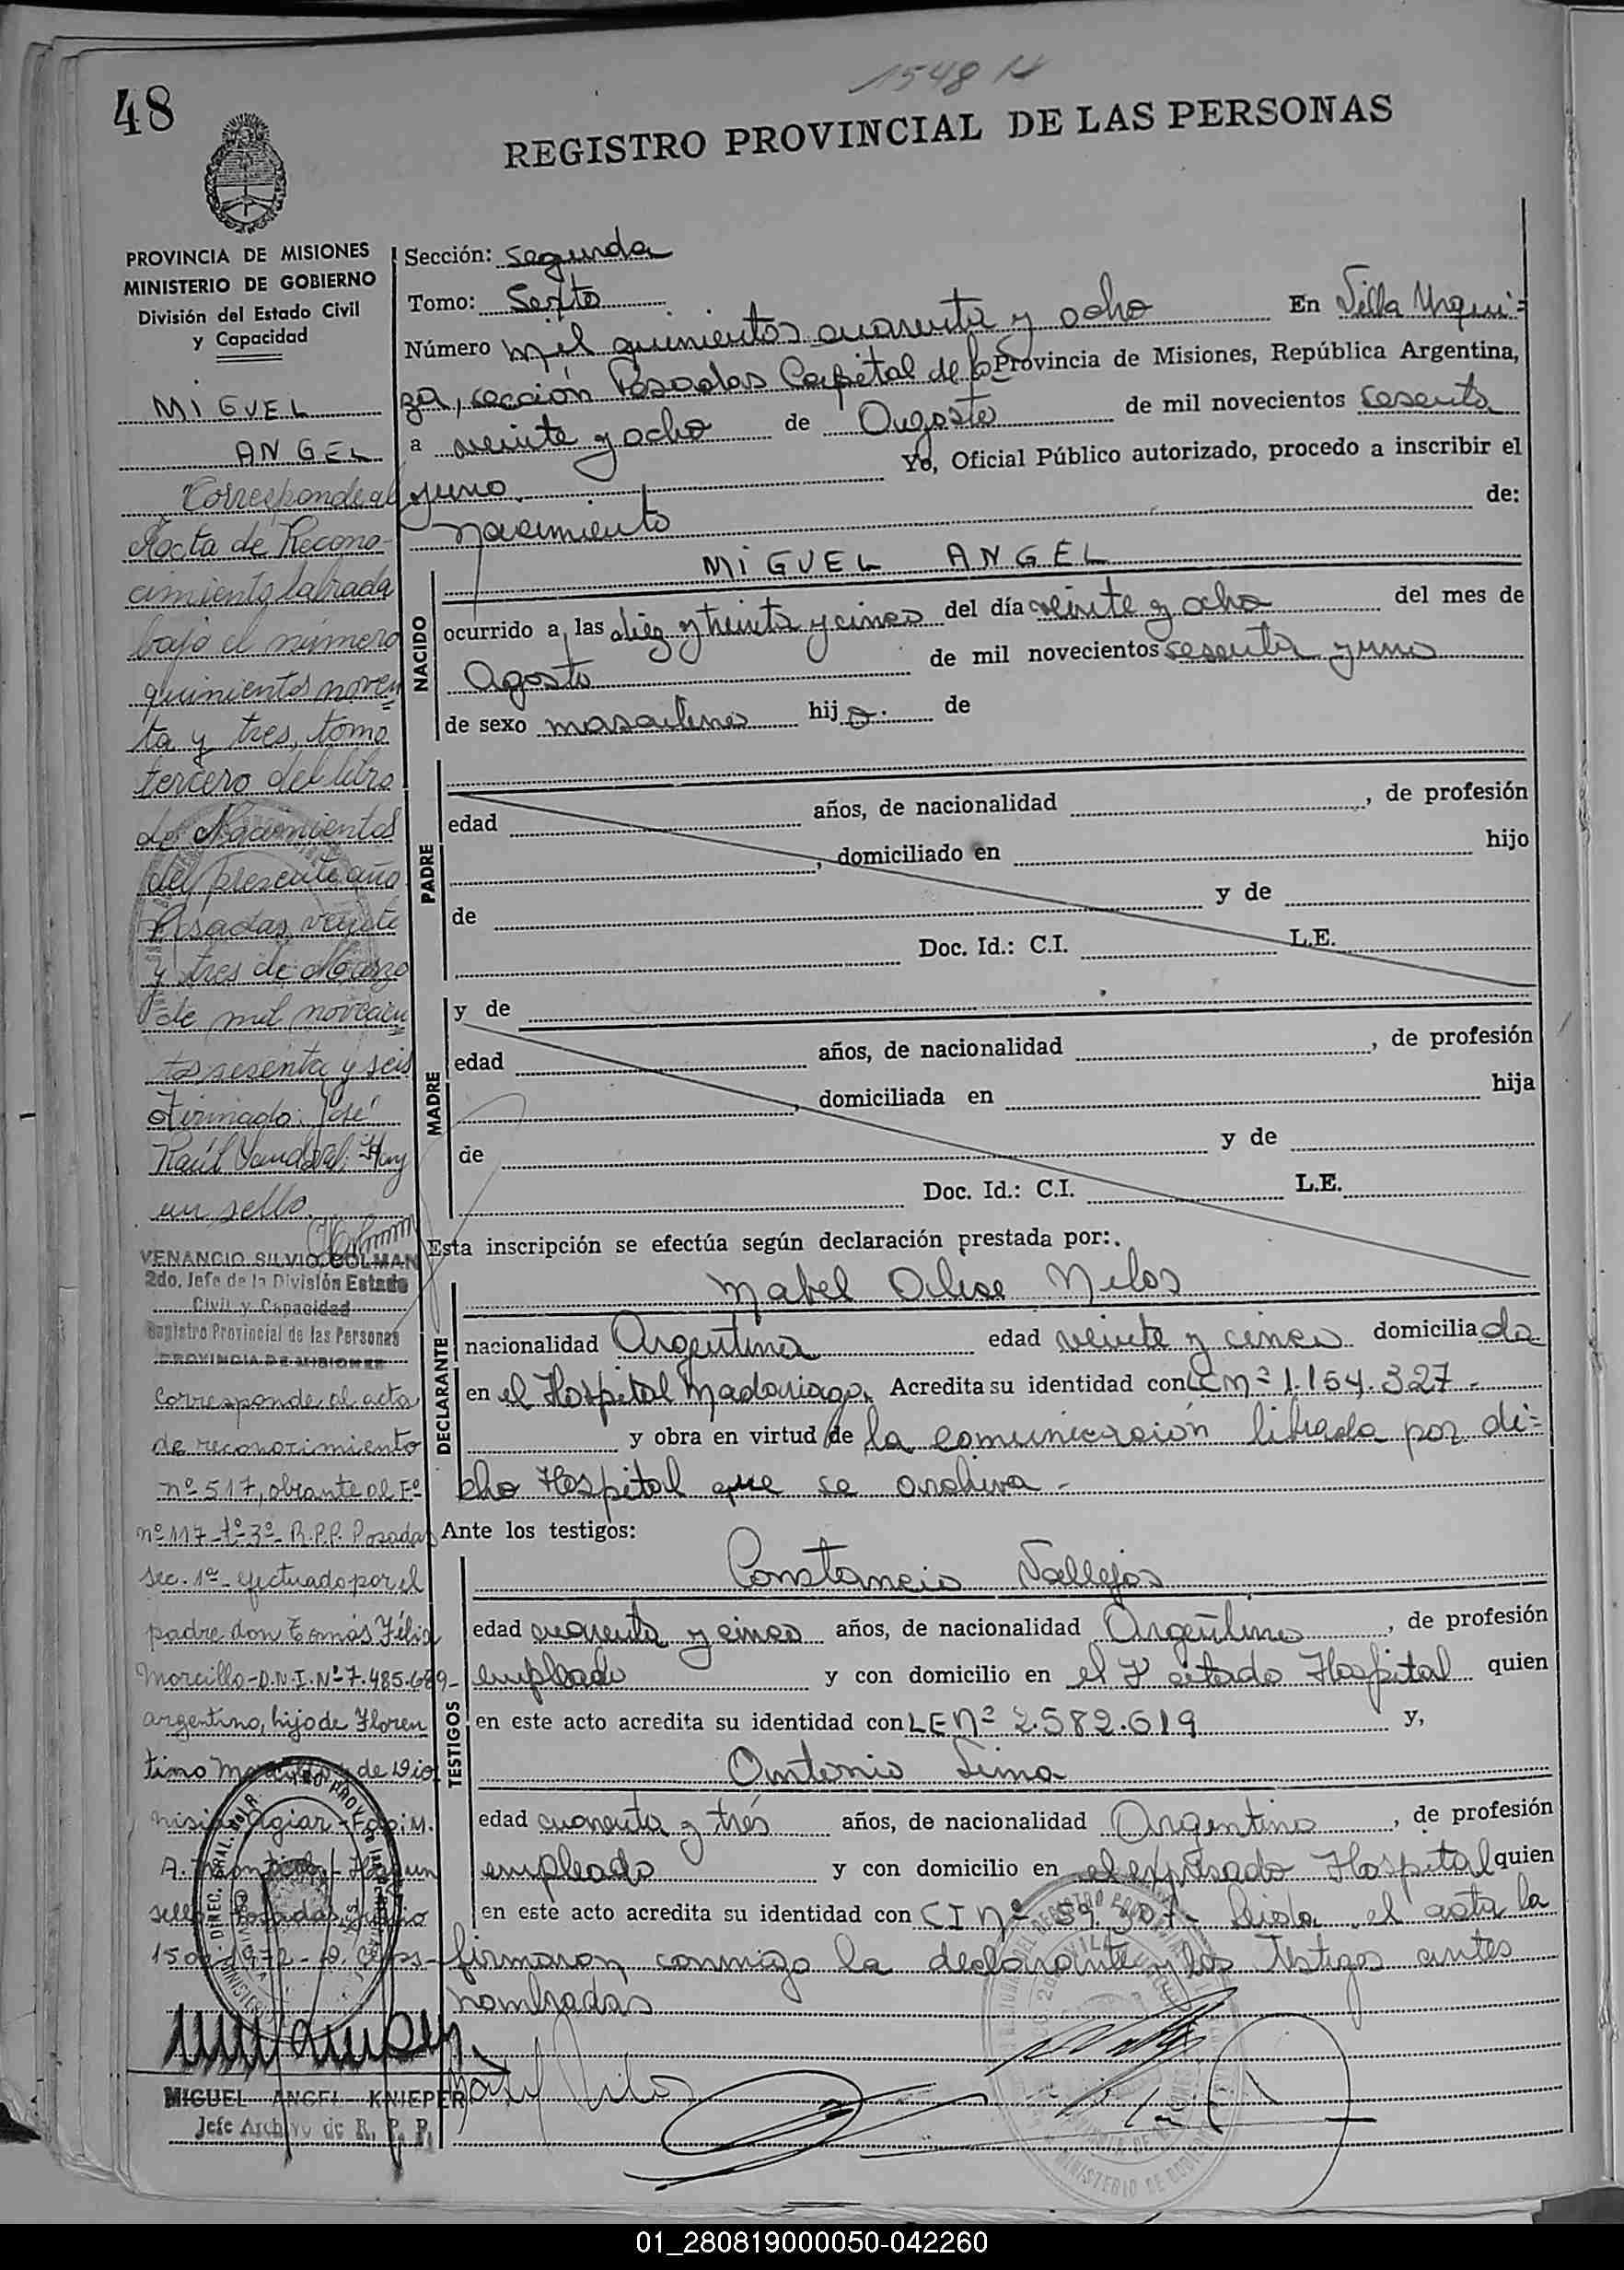 1548 N
48
REGISTRO PROVINCIAL DE LAS PERSONAS
PROVINCIA DE MISIONES
MINISTERIO DE GOBIERNO
División del Estado Civil
y Capacidad
MIGUEL
ANGEL
Corresponde al
Acta de Recono-
cimiento labrada
bajo el número
quinientos noven
ta y tres, tomo
tercero del libro
de Nacimientos
del presente año
Posadas, veinte
y tres de Marzo
de mil novecien
tos sesenta y seis
Firmado: José
Raúl Hay
un sello.
VENANCIO SILVIO COLMAN
2do. Jefe de la División Estado
Civil y Capacidad
Registro Provincial de las Personas
PROVINCIA DE MISIONES
Corresponde al acta
de reconocimiento
nº 517, obrante al Fº
nº 117 - tº 3º - R.P.P. Posadas
sec. 1ª - efectuado por el
padre don Tomás Félix
Morcillo - D.N.I. Nº 7.485.689-
argentino, hijo de Floren
tino y de Dio
nisia Agiar -
A. - Hay un
sello Posadas,
15 de 1972 -
MIGUEL ANGEL KNIEPER
Jefe Archivo de R. P. P.
Sección: Segunda
Tomo: Sexto
Número mil quinientos cuarenta y ocho En Villa Urqui=
za, sección Posadas Capital de la Provincia de Misiones, República Argentina,
a veinte y ocho de Agosto de mil novecientos sesenta
y uno. Yo, Oficial Público autorizado, procedo a inscribir el
nacimiento de:
NACIDO
MIGUEL ANGEL
ocurrido a las diez y treinta y cinco del día veinte y ocho del mes de
Agosto de mil novecientos sesenta y uno
de sexo masculino hijo. de
PADRE
edad años, de nacionalidad , de profesión
, domiciliado en hijo
de y de
Doc. Id.: C.I. L.E.
MADRE
y de
edad años, de nacionalidad , de profesión
, domiciliada en hija
de y de
Doc. Id.: C.I. L.E.
Esta inscripción se efectúa según declaración prestada por:.
DECLARANTE
Mabel Nilos
nacionalidad Argentina edad veinte y cinco domiciliada
en el Hospital Madariaga. Acredita su identidad con LC Nº 1.154.327-
y obra en virtud de la comunicación librada por di=
cho Hospital que se archiva -
Ante los testigos:
TESTIGOS
Constancio Vallejos
edad cuarenta y cinco años, de nacionalidad Argentino , de profesión
empleado y con domicilio en el citado Hospital quien
en este acto acredita su identidad con LE Nº 2.582.619 y,
Antonio Lima
edad cuarenta y tres años, de nacionalidad Argentino , de profesión
empleado y con domicilio en el expresado Hospital quien
en este acto acredita su identidad con CI Nº 59.307- Leida el acta la
firmaron conmigo la declarante y los testigos antes
nombrados
01_280819000050-042260